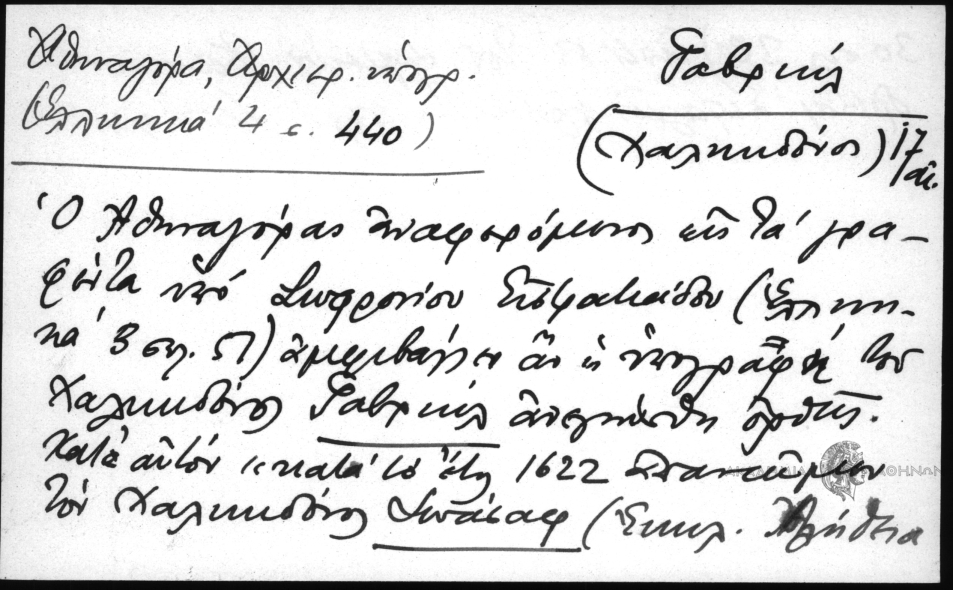 Ἀθηναγόρα, Ἀρχιερ. ὑπογρ.
(Ἑλληνικά 4 σ. 440)
Γαβριήλ
(Χαλκηδόνος) 17 αἰ.
Ὁ Ἀθηναγόρας ἀναφερόμενος εἰς τά γρα-
φέντα ὑπό Σωφρονίου Εὐστρατιάδου (Ἑλλη-
κά 3 σελ. 51) ἀμφιβάλλει ἄν ἡ ὑπογραφή τοῦ
Χαλκηδόνος Γαβριήλ ἀνεγνώσθη ὀρθῶς.
Κατ' αὐτόν κατά τό ἔτος 1622
τόν Χαλκηδόνος Ἰωάσαφ (Ἐκκλ. Ἀλήθεια